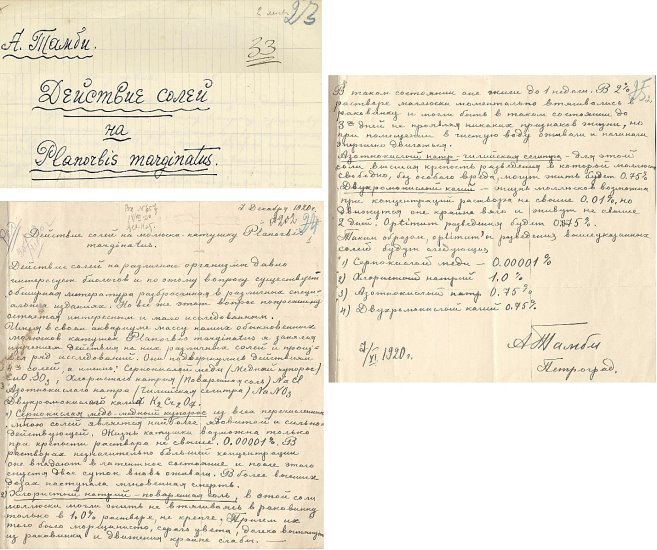 2/3
А. Тамби.
33
Действие солей
на
Planorbis marginatus.
2 Декабря 1920 г.
24
Действие солей на молюска-катушку Planorbis
marginatus.
Действие солей на различные организмы давно
интересует биологов и по этому вопросу существует
обширная литература разбросанная в различных специ-
альных изданиях. Но всё же этот вопрос попрежнему
остается интересным и мало исследованным.
Имея в своем аквариуме массу наших обыкновенных
молюсков катушек Planorbis marginatus я занялся
изучением действия на них различных солей и произ-
вел ряд исследований. Они подвергались действиям
4х солей а именно: Сернокислой меди (Медный купорос)
CuSO₄, Хлористаго натрия (Поваренная соль) NaCl
Азотнокислаго натра (Чилийская селитра) NaNO₃
Двухромокислый калий K₂Cr₂O₇.
1) Сернокислая медь-медный купорос из всех перечисленных
мною солей является наиболее ядовитой и сильно
действующей. Жизнь катушки возможна только
при крепости раствора не свыше 0.00001%. В
растворах незначительно большей концентрации
оне впадают в латентное состояние и после этого
спустя двое суток вновь оживали. В более высоких
дозах наступала мгновенная смерть.
2) Хлористый натрий-поваренная соль, в этой соли
моллюски могли жить не втягиваясь в раковинку
только в 1,0% растворе, не крепче. Причем их
тело было морщинисто, серого цвета, далеко вытянуто
из раковинки и движения крайне слабы.
25
В таком состоянии оне жили до 1 недели. В 2%
растворе моллюски моментально втягивались в
раковинку и могли быть в таком состоянии до
3х дней не проявляя никаких признаков жизни, но
при помещении в чистую воду оживали и начинали
энергично двигаться.
Азотнокислый натр-чилийская селитра - для этой
соли высшая крепость разведения в которой моллюски
свободно, без особаго вреда, могут жить будет 0.75%
Двухромокислый калий - жизнь моллюсков возможна
при концентрации раствора не свыше 0.01%, но
движутся оне крайне вяло и живут не свыше
2 дней. Optimum разведения будет 0.75%.
Таким образом, optimum'ы разведения вышеуказанных
солей будут следующие
1) Сернокислой меди - 0.00001%
2) Хлористый натрий 1.0%
3) Азотнокислый натр 0.75%
4) Двухромокислый калий 0.75%.
2/XI 1920 г.
А Тамби
Петроград.